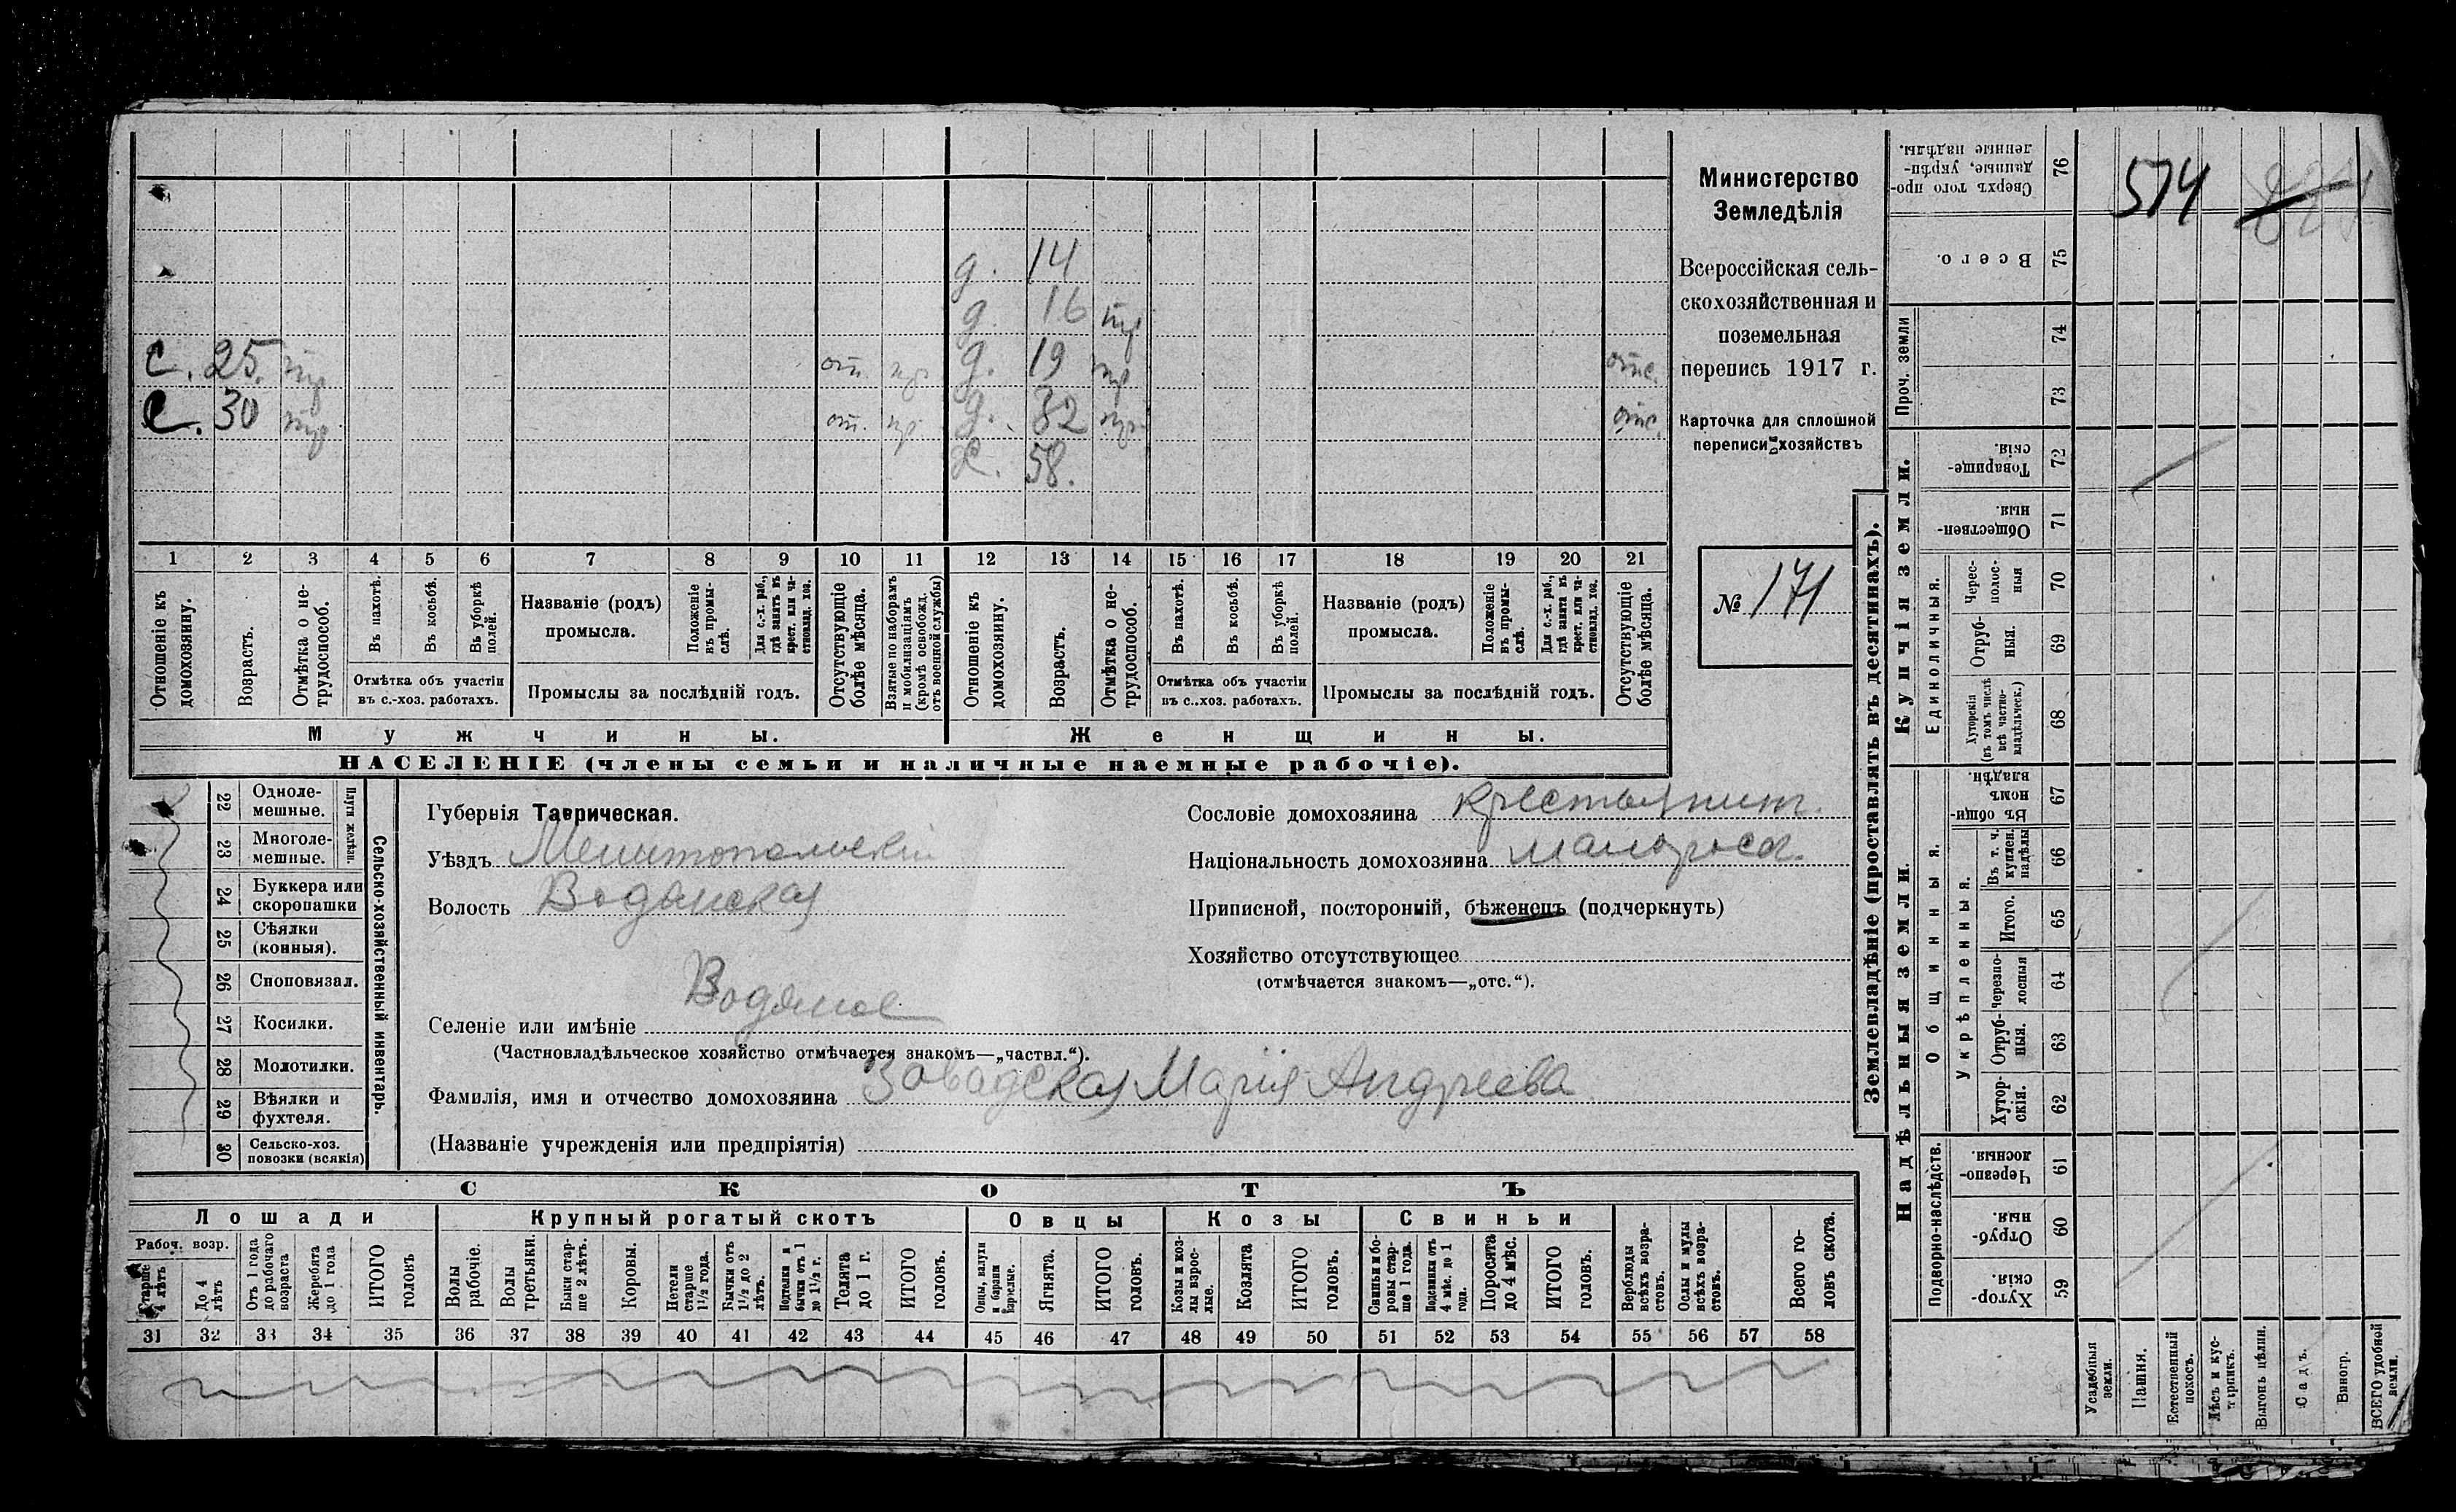 д. 14
д. 16 тр
С. 25. тр от. пр. д. 19 тр отс.
С. 30 тр от. пр. д. 32 тр отс.
Х. 58.
1 2 3 4 5 6 7 8 9 10 11 12 13 14 15 16 17 18 19 20 21
Отношеніе къ домохозяину.
Возрастъ.
Отмѣтка о нетрудоспособ.
Въ пахотѣ.
Въ косьбѣ.
Въ уборкѣ полей.
Отмѣтка объ участіи
въ с.-хоз. работахъ.
Названіе (родъ)
промысла.
Положеніе въ промыслѣ.
Для с.-х. раб., гдѣ занятъ въ крест. или частновлад. хоз.
Промыслы за послѣдній годъ.
Отсутствующіе болѣе мѣсяца.
Взятые по наборамъ и мобилизаціямъ (кромѣ освобожд. отъ военной службы)
Отношеніе къ домохозяину.
Возрастъ.
Отмѣтка о нетрудоспособ.
Въ пахотѣ.
Въ косьбѣ.
Въ уборкѣ полей.
Отмѣтка объ участіи
въ с.-хоз. работахъ.
Названіе (родъ)
промысла.
Положеніе въ промыслѣ.
Для с.-х. раб., гдѣ занята въ крест. или частновлад. хоз.
Промыслы за послѣдній годъ.
Отсутствующіе болѣе мѣсяца.
Мужчины. Женщины.
НАСЕЛЕНІЕ (члены семьи и наличные наемные рабочіе).
Министерство
Земледѣлія
Всероссійская сель-
скохозяйственная и
поземельная
перепись 1917 г.
Карточка для сплошной
переписи хозяйствъ
№ 171
22 Одноле-
мешные.
23 Многоле-
мешные.
Плуги желѣзн.
24 Буккера или
скоропашки
25 Сѣялки
(конныя).
26 Сноповязал.
27 Косилки.
28 Молотилки.
29 Вѣялки и
фухтеля.
30 Сельско-хоз.
повозки (всякія)
Сельско-хозяйственный инвентарь.
Губернія Таврическая.
Уѣздъ Мелитопольскій
Волость Водянская
Селеніе или имѣніе Водяное
(Частновладѣльческое хозяйство отмѣчается знакомъ—„частвл.“).
Фамилія, имя и отчество домохозяина Завадская Марія Андреева
(Названіе учрежденія или предпріятія)
Сословіе домохозяина крестьянинъ.
Національность домохозяина малоросс.
Приписной, посторонній, бѣженецъ (подчеркнуть)
Хозяйство отсутствующее
(отмѣчается знакомъ—„отс.“).
СКОТЪ
Лошади Крупный рогатый скотъ Овцы Козы Свиньи
Рабоч. возр.
Старше 4 лѣтъ
До 4 лѣтъ
Отъ 1 года до рабочаго возраста
Жеребята до 1 года
ИТОГО головъ
Волы рабочіе.
Волы третьяки.
Быки старше 2 лѣтъ.
Коровы.
Нетели старше 1½ года.
Бычки отъ 1½ до 2 лѣтъ.
Подтелки и бычки отъ 1 до 1½ г.
Телята до 1 г.
ИТОГО головъ.
Овцы, валухи и бараны взрослые.
Ягнята.
ИТОГО головъ.
Козы и козлы взрослые.
Козлята
ИТОГО головъ.
Свиньи и боровы старше 1 года.
Подсвинки отъ 4 мѣс. до 1 года.
Поросята до 4 мѣс.
ИТОГО головъ.
Верблюды всѣхъ возрастовъ.
Ослы и мулы всѣхъ возрастовъ.
Всего головъ скота.
31 32 33 34 35 36 37 38 39 40 41 42 43 44 45 46 47 48 49 50 51 52 53 54 55 56 57 58
Землевладѣніе (проставлять въ десятинахъ).
Сверхъ того проданные, укрѣпленные надѣлы. 76
574
Всего. 75
Проч. земли 74
73
Купчія земли.
Товарищескія. 72
Общественныя. 71
Единоличныя.
Чрезполосныя 70
Отрубныя. 69
Хуторскія (въ томъ числѣ всѣ частновладѣльческ.) 68
Надѣльныя земли.
Общинныя.
Въ общинномъ владѣн. 67
Укрѣпленныя.
Въ т. ч. куплен. надѣлы 66
Итого. 65
Черезполосныя 64
Отрубныя. 63
Хуторскія. 62
Подворно-наслѣдств.
Черезполосныя 61
Отрубныя. 60
Хуторскія. 59
Усадебныя земли.
Пашня.
Естественный покосъ.
Лѣсъ и кустарникъ.
Выгонъ цѣлин.
Садъ.
Виногр.
ВСЕГО удобной земли.